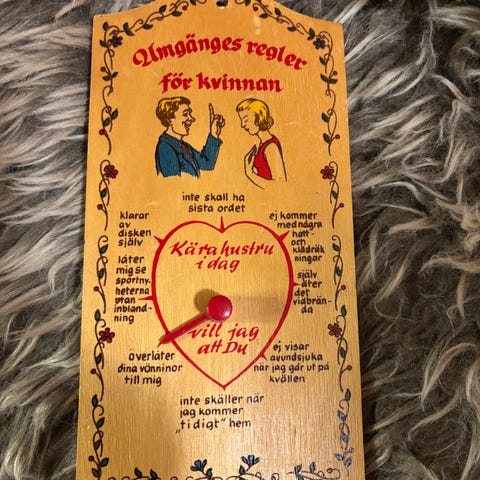 Umgänges regler
för kvinnan
inte skall ha
sista ordet
klarar
av
disken
själv
ej kommer
med några
hatt-
och
klädräk
ningar
Kära hustru
i dag
låter
mig se
sportny.
heterna
utan
inbland-
ning
själv
äter
det
vidbrän-
da
vill jag
att Du
överlåter
dina vänninor
till mig
ej visar
avundsjuka
när jag går ut på
kvällen
inte skäller när
jag kommer
„tidigt" hem